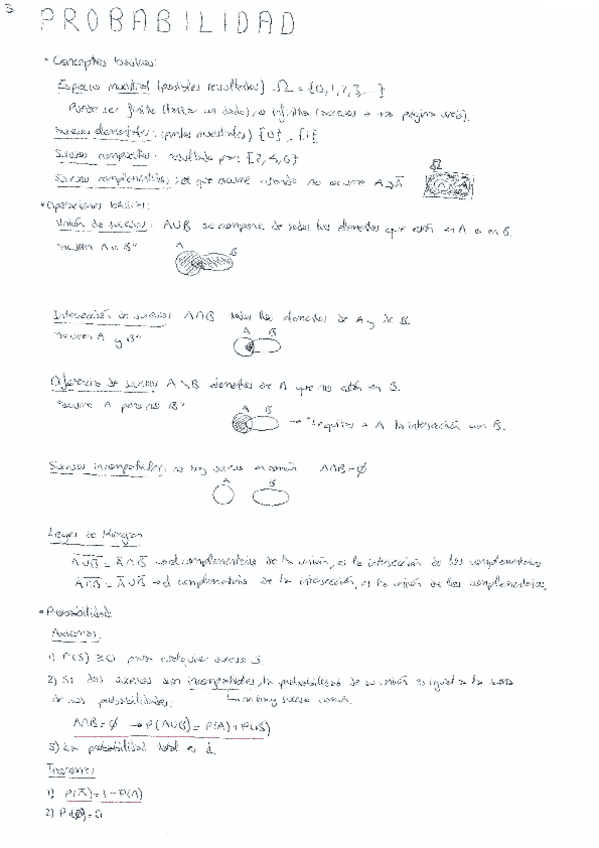 3
PROBABILIDAD
• Conceptos básicos:
Espacio muestral (posibles resultados) Ω = {0,1,2,3...}
Puede ser finito (lanzar un dado) o infinito (página web).
Sucesos elementales: (puntos muestrales) {0} .. {1}
Suceso compuesto: resultado par: {2,4,6}
Suceso complementario: el que ocurre cuando no ocurre A → Ā
Ω
• Operaciones básicas:
Unión de sucesos: A∪B se compone de todos los elementos que están en A o en B.
"ocurren A o B"
A B
Intersección de sucesos A∩B todos los elementos de A y de B.
"ocurren A y B"
A B
Diferencia de sucesos A \ B elementos de A que no están en B.
"ocurre A pero no B"
A B
→ "le quitas a A la intersección con B.
Sucesos incompatibles: no hay suceso en común A∩B=∅
A B
Leyes de Morgan
A̅∪̅B̅ = Ā∩B̅ → el complementario de la unión, es la intersección de los complementarios
A̅∩̅B̅ = Ā∪B̅ → el complementario de la intersección, es la unión de los complementarios.
• Probabilidad
Axiomas:
1) P(S) ≥ 0 para cualquier suceso S.
2) Si dos sucesos son incompatibles, la probabilidad de su unión es igual a la suma
de sus probabilidades: ↳ no hay suceso común.
A∩B = ∅ → P(A∪B) = P(A) + P(B)
3) La probabilidad total es 1.
Teoremas
1) P(Ā) = 1 - P(A)
2) P(∅) = 0